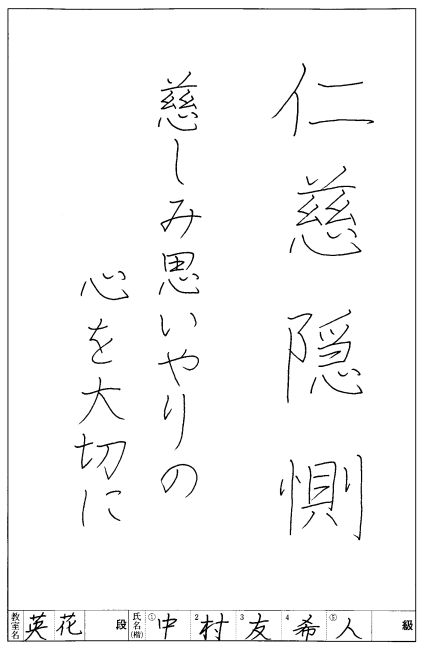 仁慈隠惻
慈しみ思いやりの
心を大切に
教室名 英花 段 氏名(楷) ①中 2村 3友 4希 ⑤人 級